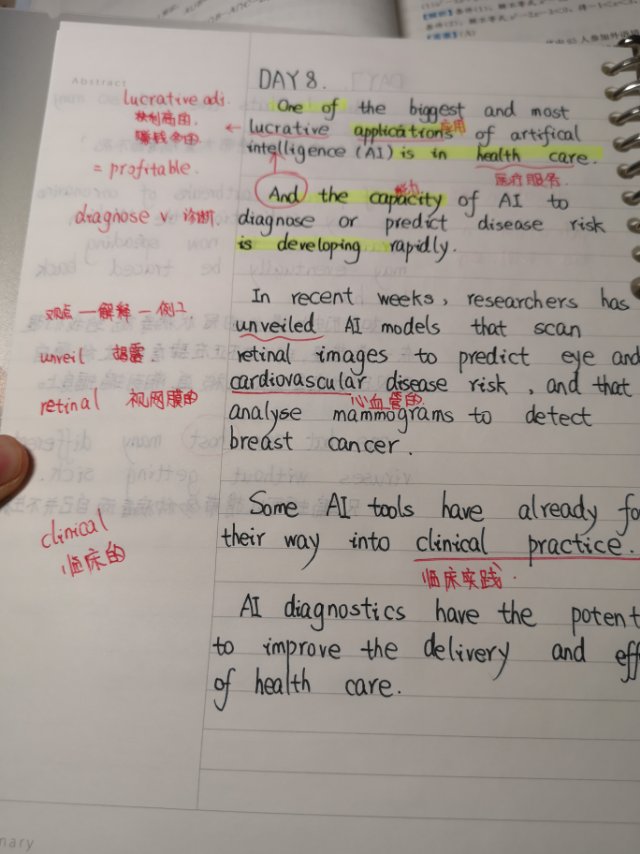 Abstract
DAY 8.
lucrative adj.
获利高的.
赚钱多的
= profitable.
diagnose v. 诊断.
One of the biggest and most
← lucrative applications 应用 of artifical
intelligence (AI) is in health care.
医疗服务.
And the capacity 能力 of AI to
diagnose or predict disease risk
is developing rapidly.
观点 — 解释 — 例子.
unveil 揭露
retinal 视网膜的
In recent weeks, researchers has
unveiled AI models that scan
retinal images to predict eye and
cardiovascular disease risk, and that
心血管的.
analyse mammograms to detect
breast cancer.
clinical
临床的
Some AI tools have already fo
their way into clinical practice.
临床实践.
AI diagnostics have the potent
to improve the delivery and eff
of health care.
mary